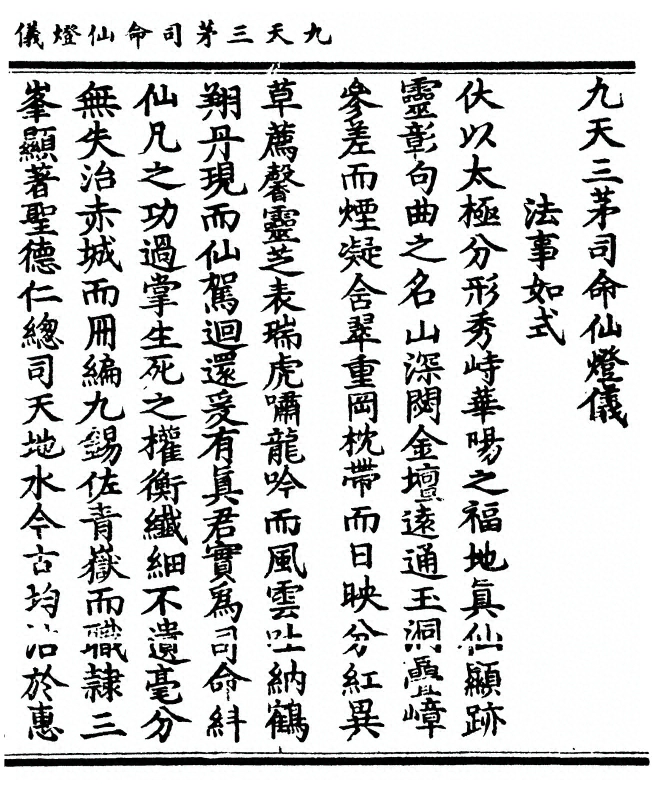 九天三茅司命仙燈儀
九天三茅司命仙燈儀
法事如式
伏以太極分形秀峙華陽之福地真仙顯跡
靈彰句曲之名山深閟金壇遠通玉洞疊嶂
參差而煙凝舍翠重岡枕帶而日映分紅異
草薦馨靈芝表瑞虎嘯龍吟而風雲吐納鶴
翔丹現而仙駕迴還爰有真君實為司命糾
仙凡之功過掌生死之權衡纖細不遺毫分
無失治赤城而冊編九錫佐青嶽而職隸三
峯顯著聖德仁總司天地水今古均沾於惠